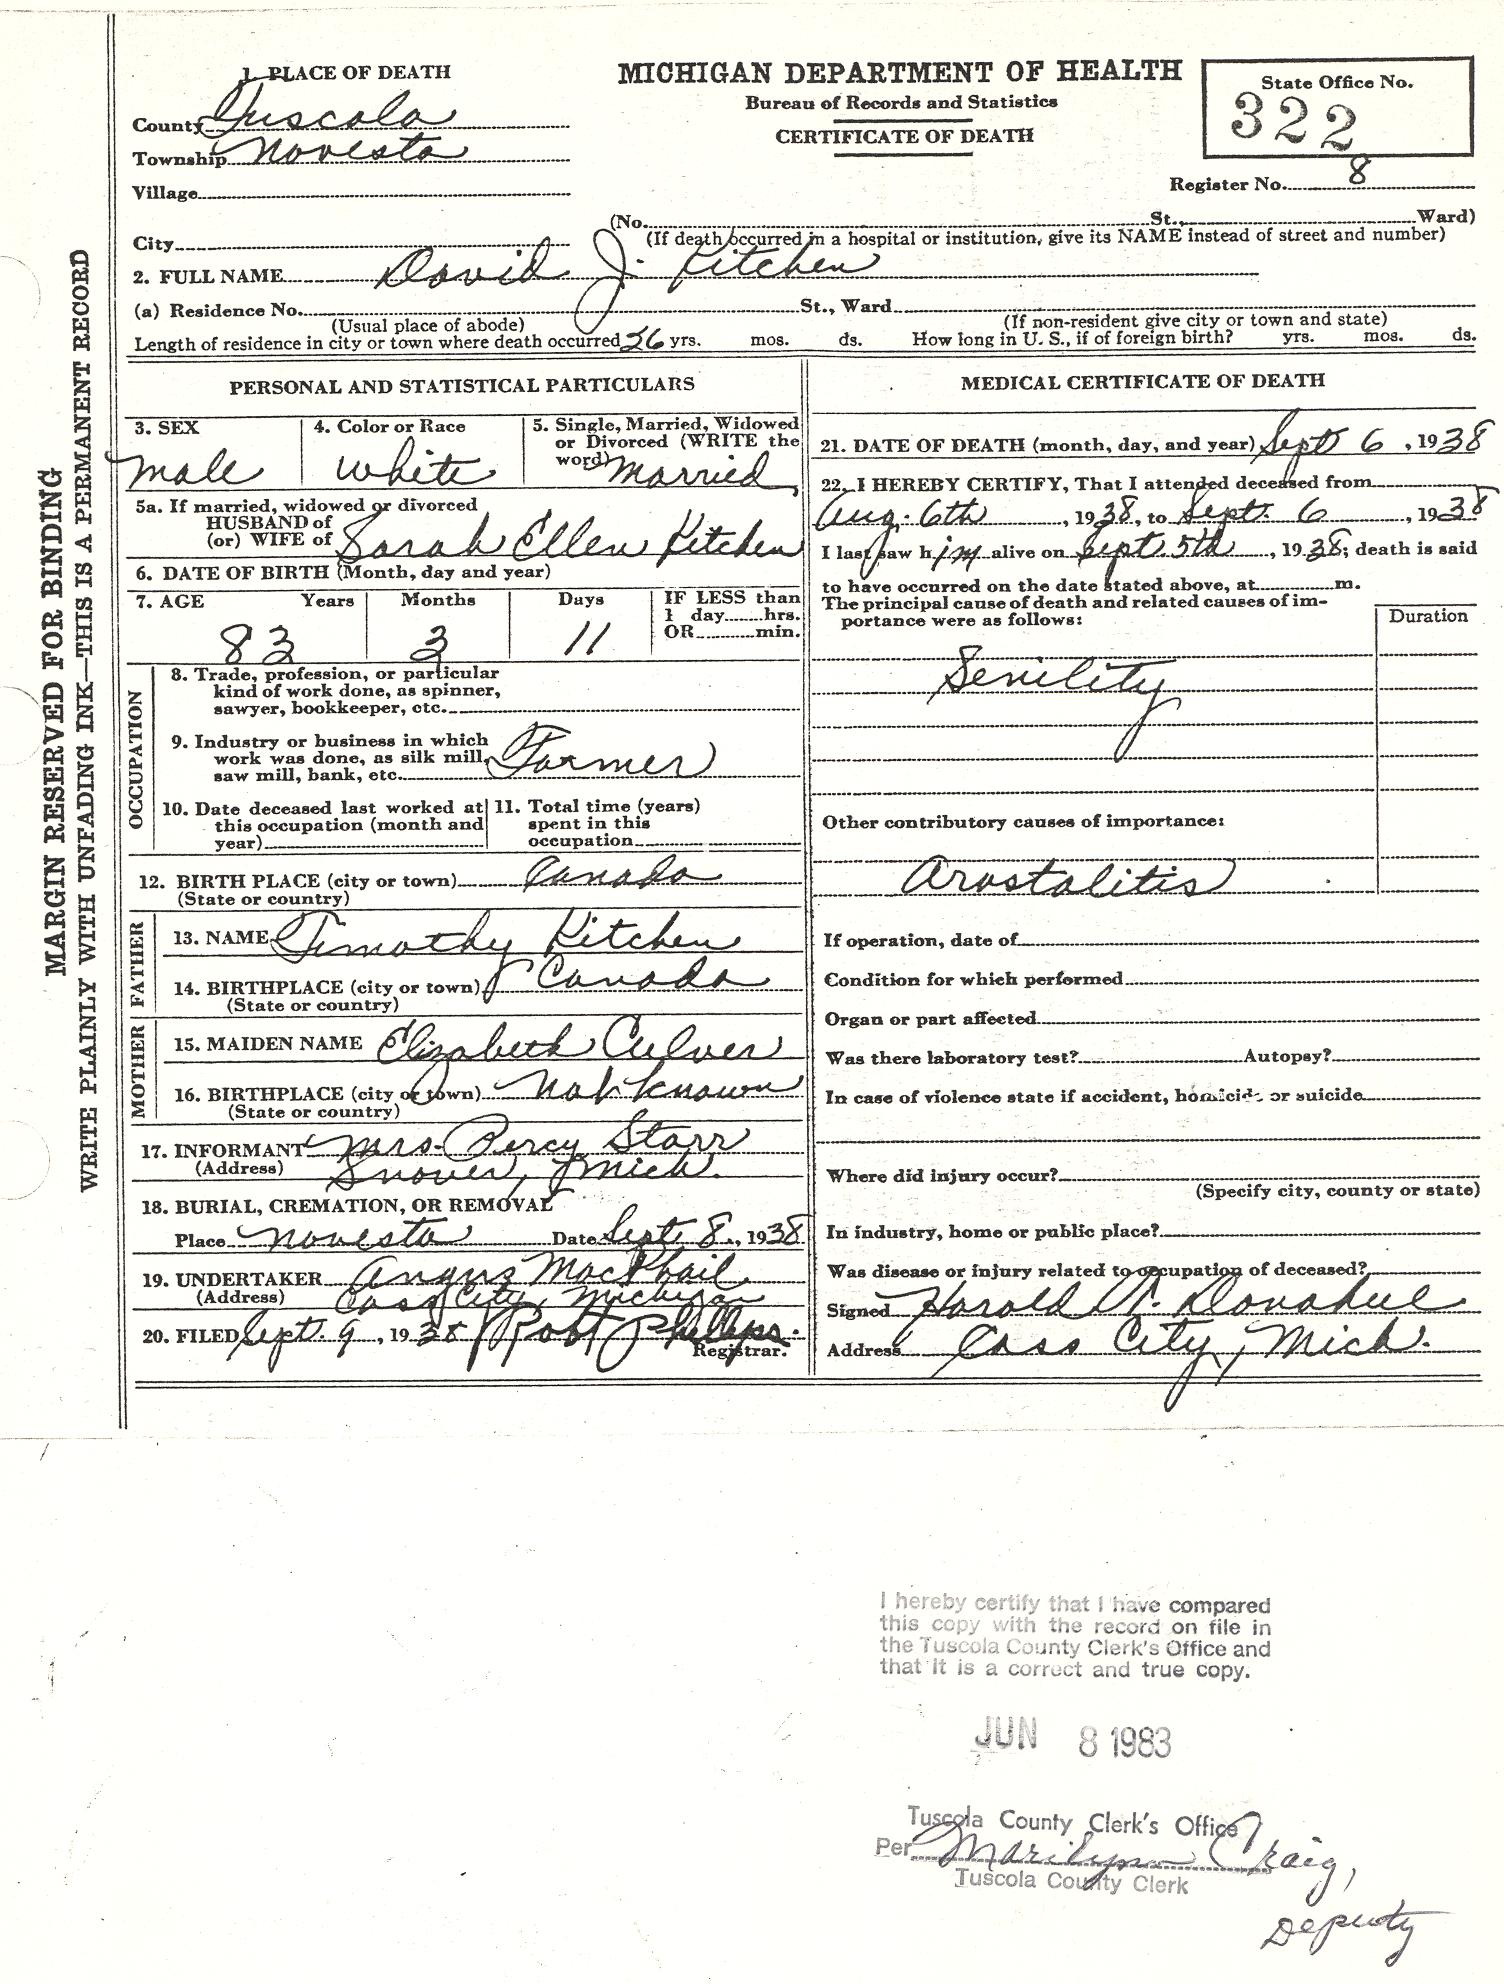 MARGIN RESERVED FOR BINDING
WRITE PLAINLY WITH UNFADING INK—THIS IS A PERMANENT RECORD
1. PLACE OF DEATH
MICHIGAN DEPARTMENT OF HEALTH
Bureau of Records and Statistics
CERTIFICATE OF DEATH
State Office No.
322
County Tuscola
Township Novesta
Village
Register No. 8
(No. St., Ward)
City
(If death occurred in a hospital or institution, give its NAME instead of street and number)
2. FULL NAME David J. Kitchen
(a) Residence No. St., Ward
(Usual place of abode) (If non-resident give city or town and state)
Length of residence in city or town where death occurred 26 yrs. mos. ds. How long in U. S., if of foreign birth? yrs. mos. ds.
PERSONAL AND STATISTICAL PARTICULARS
3. SEX 4. Color or Race 5. Single, Married, Widowed
or Divorced (WRITE the
word)
male white married
5a. If married, widowed or divorced
HUSBAND of
(or) WIFE of Sarah Ellen Kitchen
6. DATE OF BIRTH (Month, day and year)
7. AGE Years Months Days IF LESS than
1 day hrs.
OR min.
83 3 11
OCCUPATION
8. Trade, profession, or particular
kind of work done, as spinner,
sawyer, bookkeeper, etc.
9. Industry or business in which
work was done, as silk mill,
saw mill, bank, etc. Farmer
10. Date deceased last worked at
this occupation (month and
year)
11. Total time (years)
spent in this
occupation
12. BIRTH PLACE (city or town) Canada
(State or country)
FATHER
13. NAME Timothy Kitchen
14. BIRTHPLACE (city or town) Canada
(State or country)
MOTHER
15. MAIDEN NAME Elizabeth Culver
16. BIRTHPLACE (city or town) Not known
(State or country)
17. INFORMANT Mrs. Percy Starr
(Address) Snover, Mich.
18. BURIAL, CREMATION, OR REMOVAL
Place Novesta Date Sept 8, 1938
19. UNDERTAKER Angus MacPhail
(Address) Cass City, Michigan
20. FILED Sept. 9, 1938 Robt Phillips.
Registrar.
MEDICAL CERTIFICATE OF DEATH
21. DATE OF DEATH (month, day, and year) Sept 6, 1938
22. I HEREBY CERTIFY, That I attended deceased from
Aug. 6th, 1938, to Sept. 6, 1938
I last saw him alive on Sept 5th, 1938; death is said
to have occurred on the date stated above, at m.
The principal cause of death and related causes of im-
portance were as follows:
Duration
Senility
Other contributory causes of importance:
If operation, date of
Condition for which performed
Organ or part affected
Was there laboratory test? Autopsy?
In case of violence state if accident, homicide or suicide
Where did injury occur?
(Specify city, county or state)
In industry, home or public place?
Was disease or injury related to occupation of deceased?
Signed Harold T. Donahue
Address Cass City, Mich.
I hereby certify that I have compared
this copy with the record on file in
the Tuscola County Clerk's Office and
that it is a correct and true copy.
JUN 8 1983
Tuscola County Clerk's Office
Per Marilynn Craig,
Tuscola County Clerk
Deputy